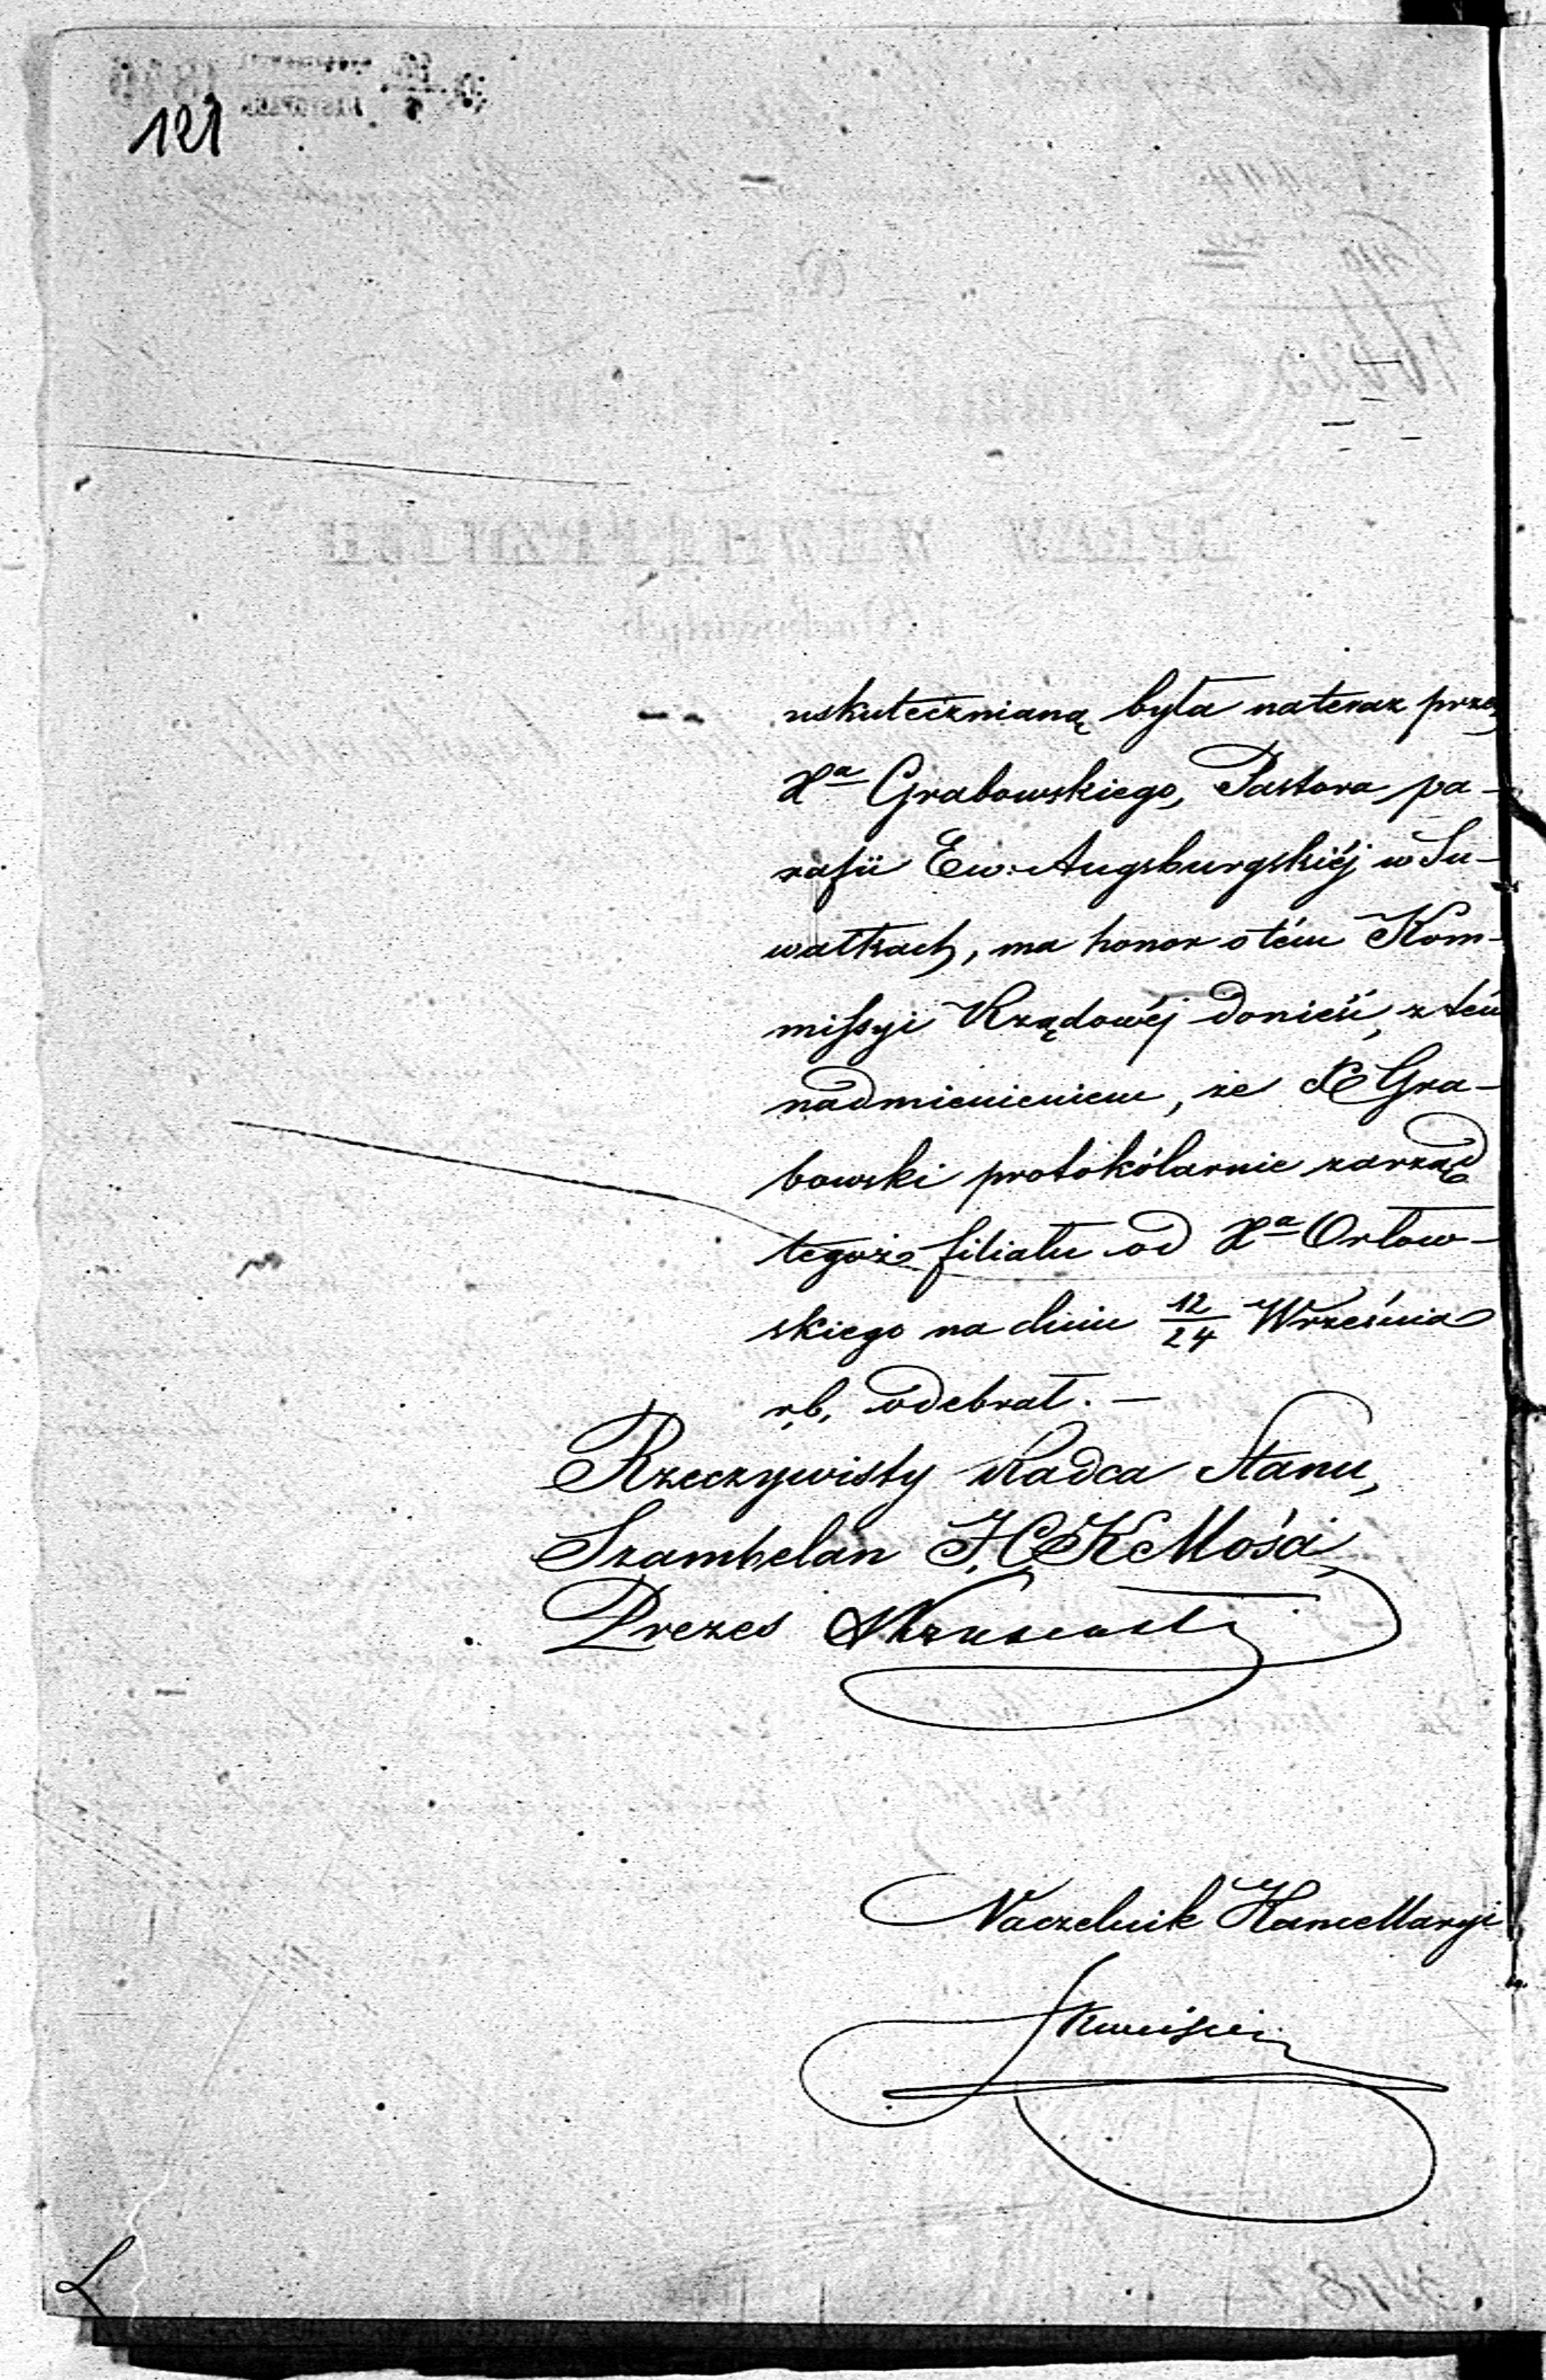 121
uskutecznianą była nateraz przez
Xa Grabowskiego, Pastora pa-
rafii Ew: Augsburgskiéj w Su-
wałkach, ma honor o tém Kom-
missyi Rządowéj donieść, z tém
nadmienieniem, że X Gra-
bowski protokólarnie zarząd
tegoż filiału od Xa Orłow-
skiego na dniu 12/24 Września
r.b. odebrał. —
Rzeczywisty Radca Stanu,
Szambelan J.C.K Mości
Prezes
Naczelnik Kancellaryi